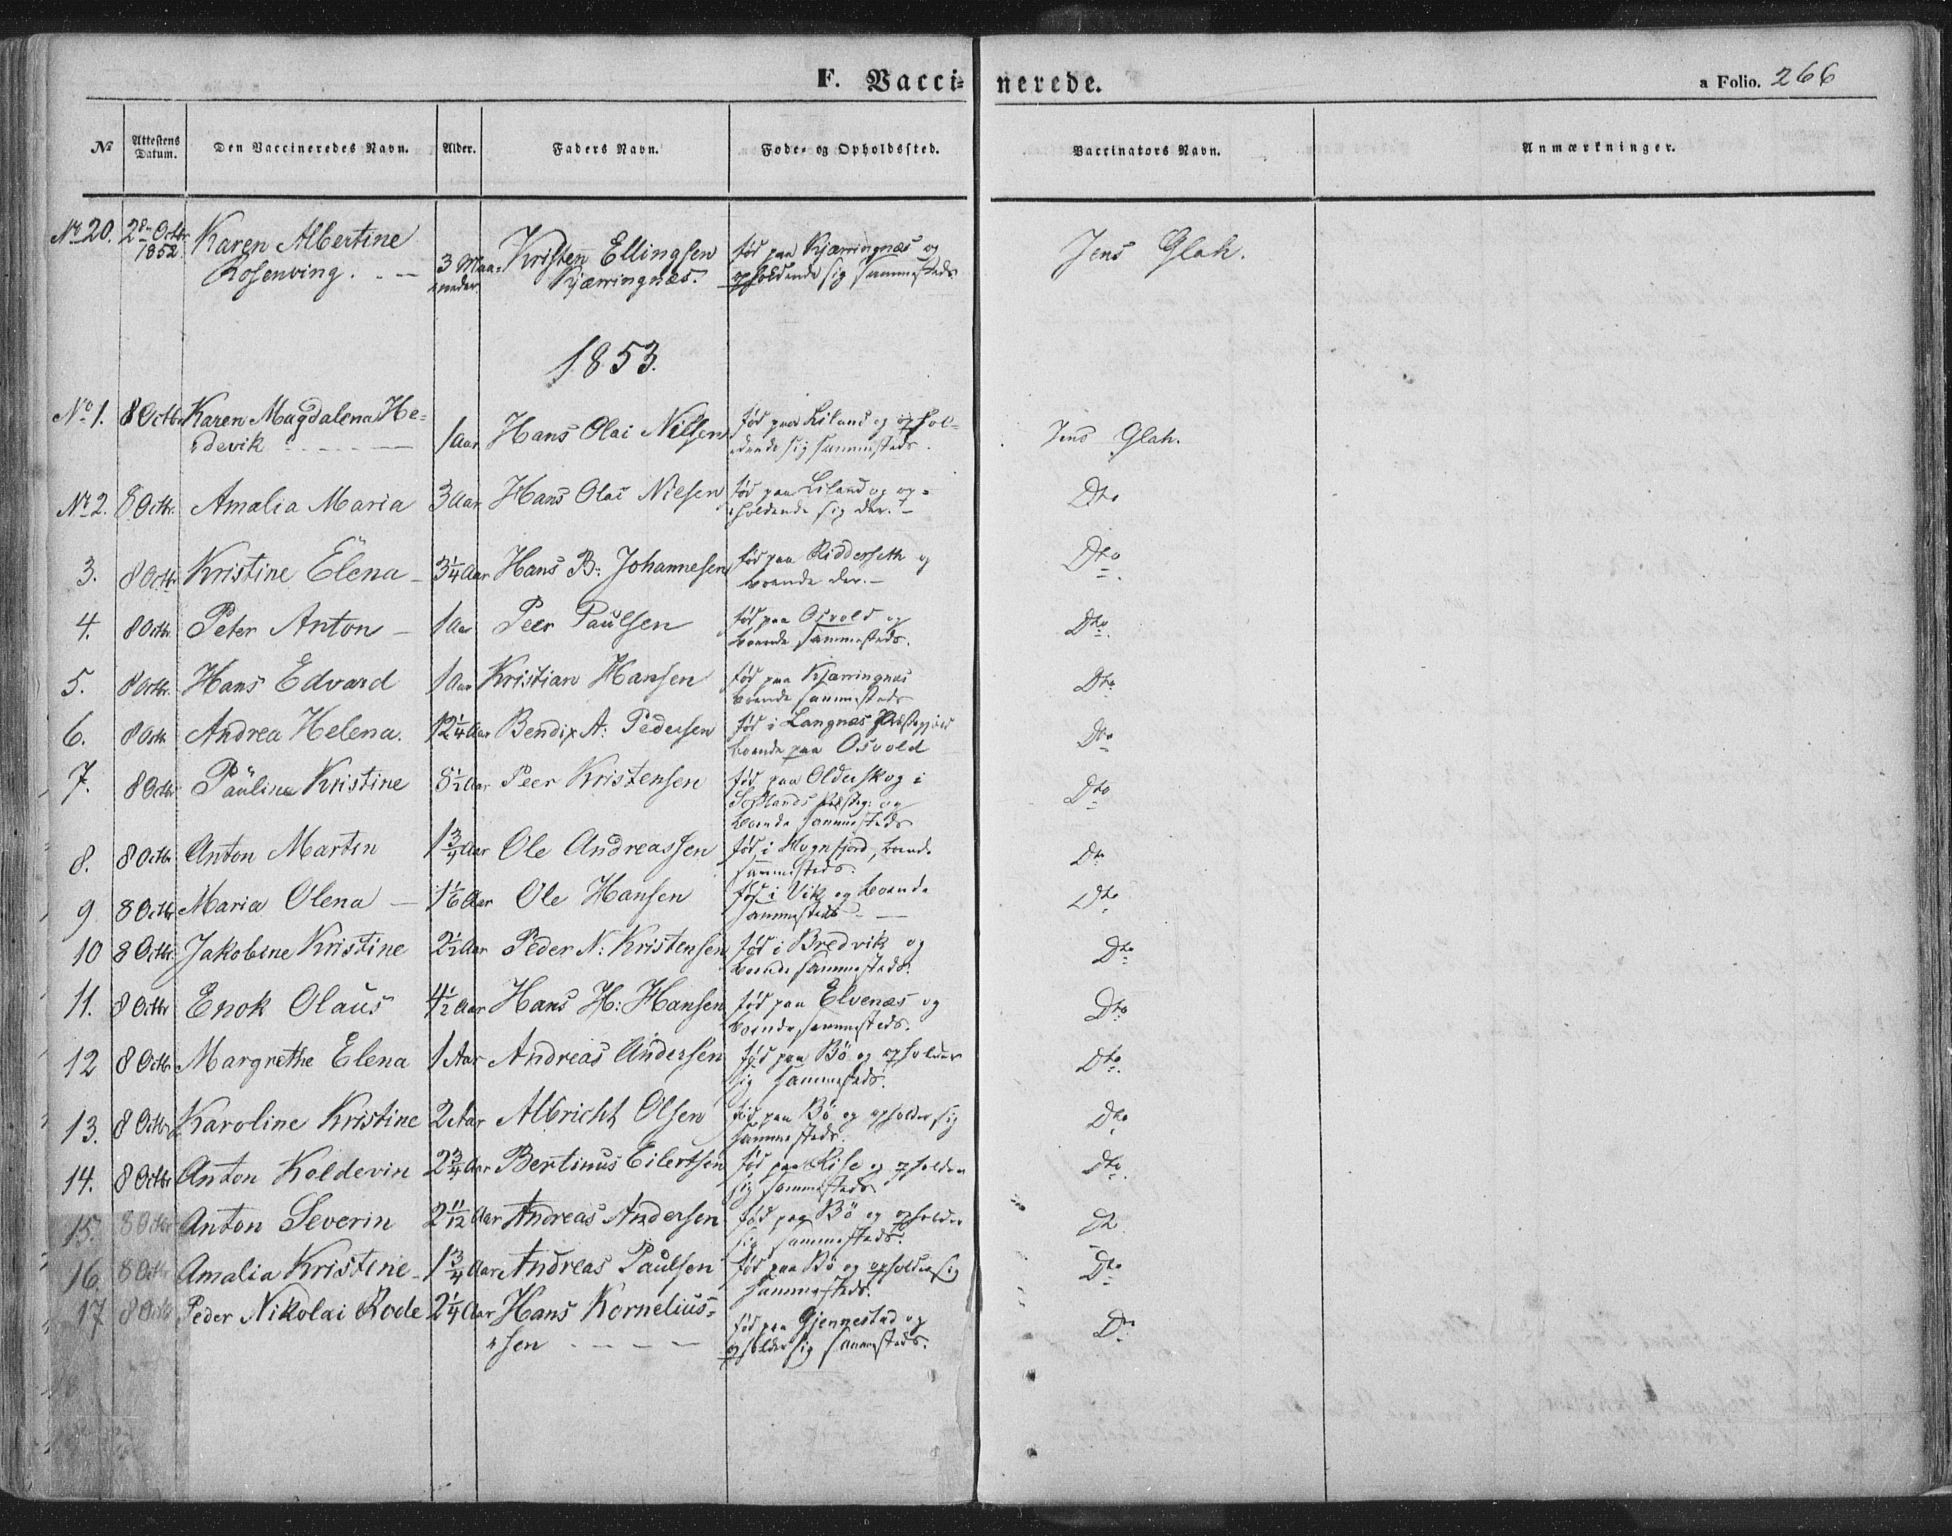 F. Vacci-
nerede.
a Folio. 266
No
Attestens Datum.
Den Vaccineredes Navn.
Alder.
Faders Navn.
Føde- og Opholdssted.
Vaccinators Navn.
Anmærkninger.
No 20. 28de Octbr 1852. Karen Albertine
Rosenving. 3 Maaneder. Kristen Ellingsen
Kjærringnæs. fød paa Kjærringnæs og
opholdende sig sammesteds Jens Glah.
1853.
No 1. 8 Octbr Karen Magdalena He-
devik 1 Aar Hans Olai Nilsen fød paa Liland og ophol-
dende sig sammesteds. Jens Glah.
No 2. 8 Octbr. Amalia Maria 3 Aar Hans Olai Nilsen fød paa Liland og op-
holdende sig der. Dto
3. 8 Octbr Kristine Elena 3 1/4 Aar Hans B: Johannesen fød paa Ridderseth og
boende der. Dto
4. 8 Octbr Peter Anton 1 Aar Peer Paulsen fød paa Osvold og
boende sammesteds. Dto
5. 8 Octbr. Hans Edvard 1 Aar Kristian Hansen fød paa Kjærringnæs
boende sammesteds Dto
6. 8 Octbr. Andrea Helena. 12 1/4 Aar Bendix A: Pedersen fød i Langnæs Præstegjeld
boende paa Osvold Dto
7. 8 Octbr Pauline Kristine 8 1/2 Aar Peer Kristensen fød paa Olderskog i
boende sammesteds Dto
8. 8 Octbr Anton Martin 1 3/4 Aar Ole Andreassen fød i Hognfjord, boende
sammesteds. Dto
9 8 Octbr Maria Olena 1 1/6 Aar Ole Hansen fød i Vik og boende
sammesteds Dto
10 8 Octbr Jakobine Kristine 2 1/2 Aar Peder N: Kristensen fød i Bredvik og
boende sammesteds. Dto
11. 8 Octbr Enok Olaus 4 1/2 Aar Hans H: Hansen fød paa Elvenæs og
boende sammesteds. Dto
12 8 Octbr Margrethe Elena 1 Aar Andreas Andersen fød paa Bø og opholder
sig sammesteds. Dto
13. 8 Octbr Karoline Kristine 2 Aar Albricht Olsen fød paa Bø og opholder sig
sammesteds. Dto
14. 8 Octbr Anton Koldevin 2 3/4 Aar Bertinus Eilertsen fød paa Rise og opholder
sig sammesteds. Dto
15. 8 Octbr Anton Severin 2 11/12 Aar Andreas Andersen fød paa Bø og opholder
sig sammesteds. Dto
16. 8 Octbr Amalia Kristine 1 3/4 Aar Andreas Paulsen fød paa Bø og opholder sig
sammesteds. Dto
17 8 Octbr Peder Nikolai Rode 2 1/4 Aar Hans Kornelius-
sen fød paa Gjennestad og
opholder sig sammesteds. Dto